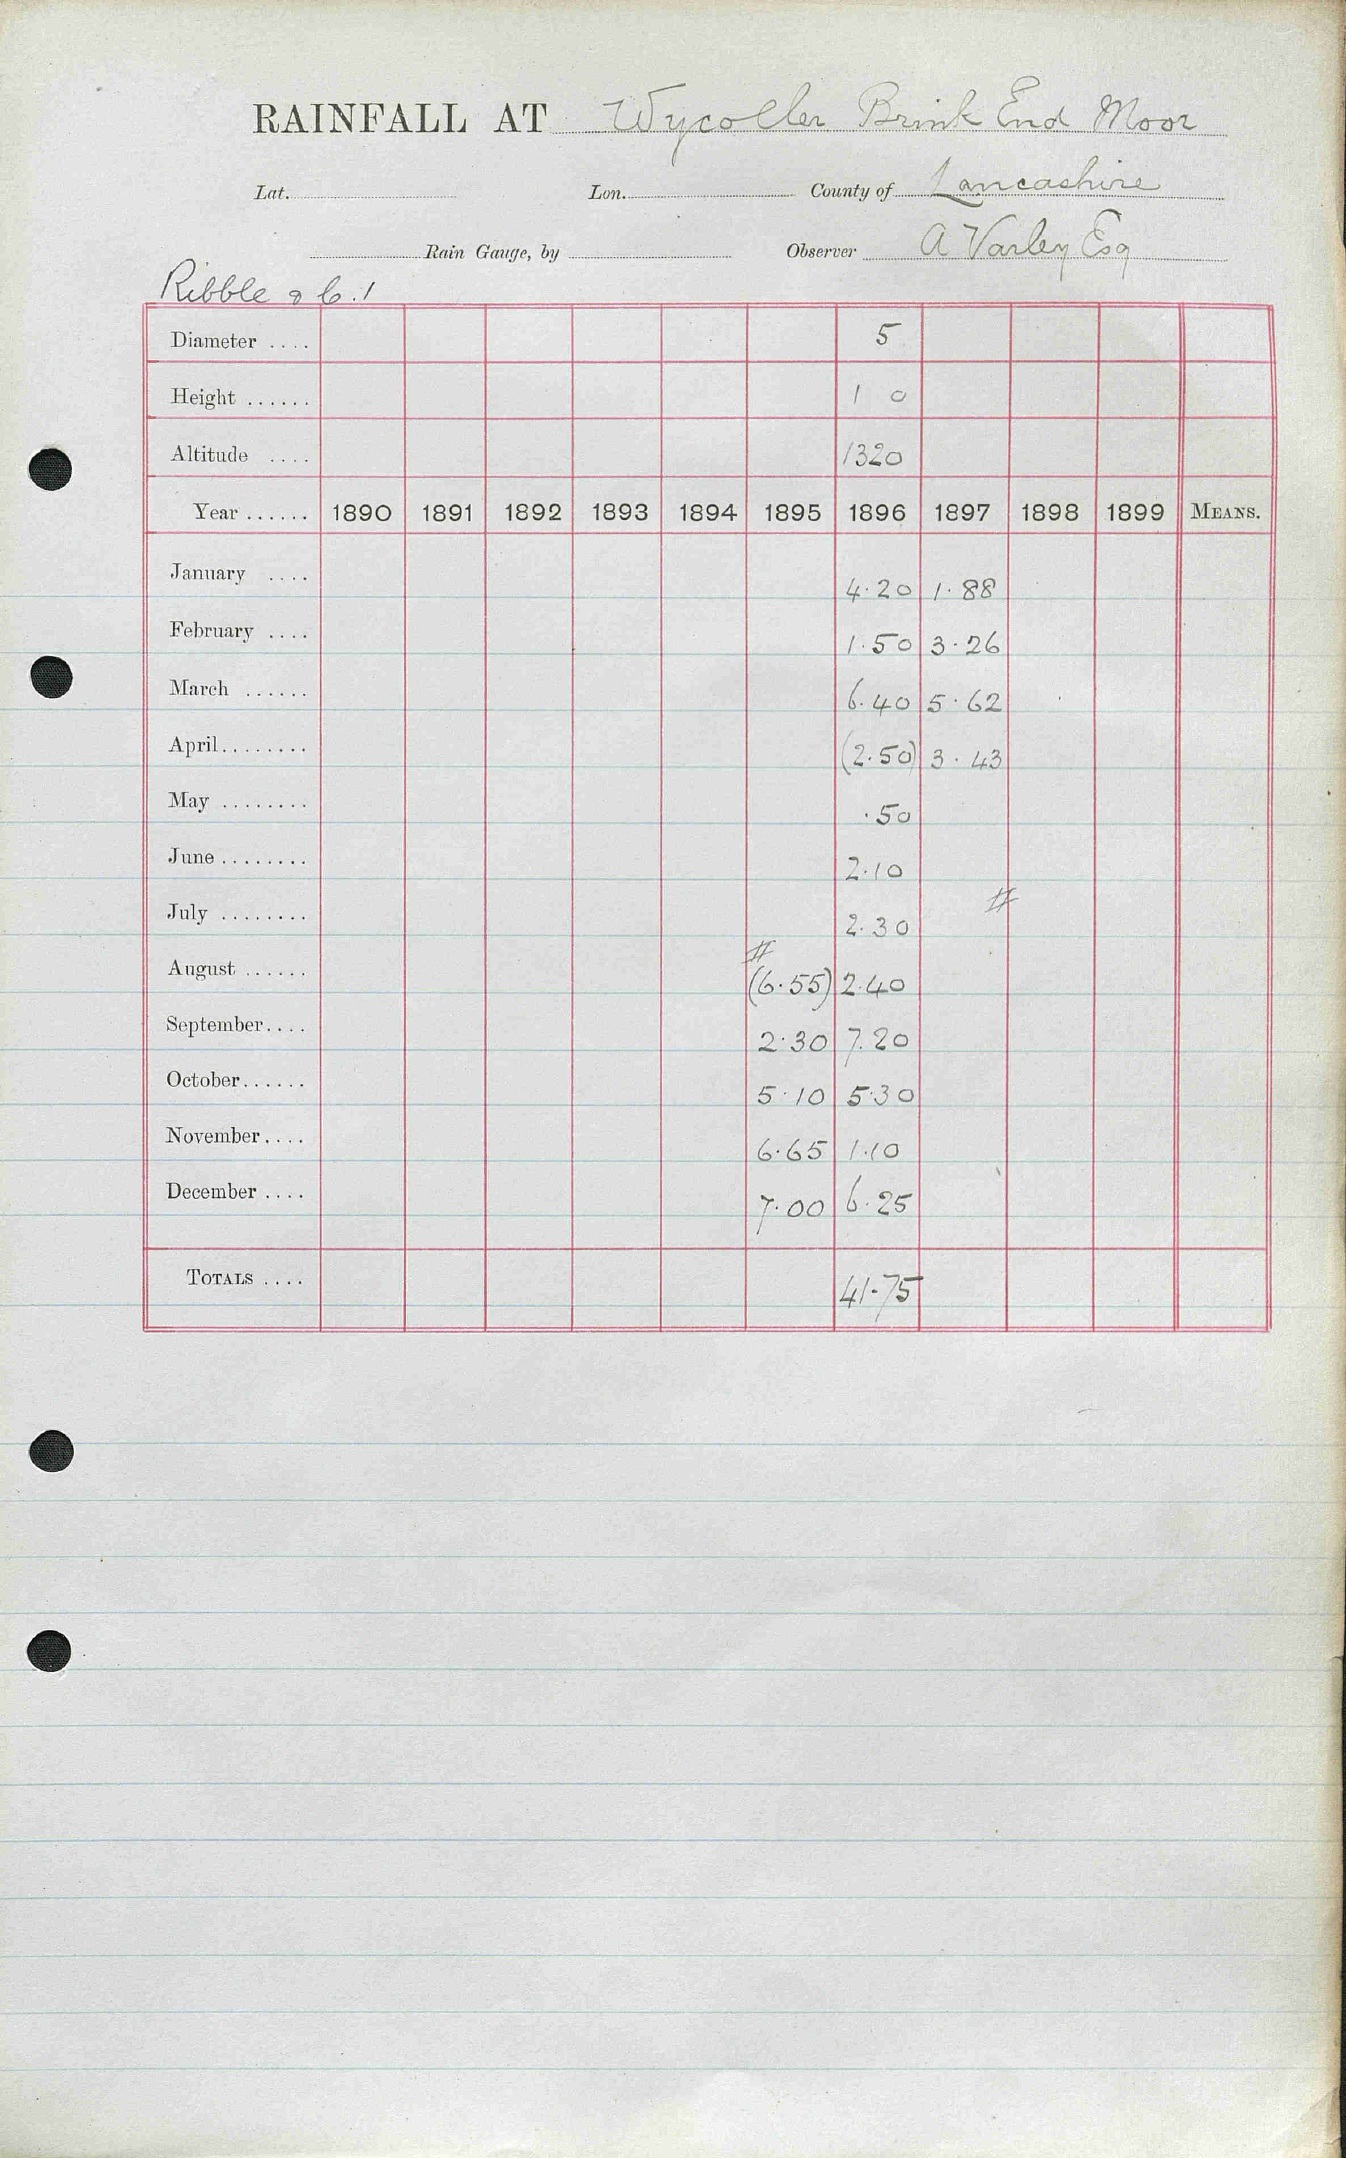 RAINFALL AT Wycoller Brink End Moor
Lat. Lon. County of Lancashire
Rain Gauge, by Observer A Varley Esq
Ribble & C.1
Diameter .... 5
Height ...... 1 0
Altitude .... 1320
Year ...... 1890 1891 1892 1893 1894 1895 1896 1897 1898 1899 MEANS.
January .... 4.20 1.88
February .... 1.50 3.26
March ...... 6.40 5.62
April........ (2.50) 3.43
May ........ .50
June ........ 2.10
July ........ 2.30 #
August ...... # (6.55) 2.40
September.... 2.30 7.20
October...... 5.10 5.30
November.... 6.65 1.10
December .... 7.00 6.25
TOTALS .... 41.75